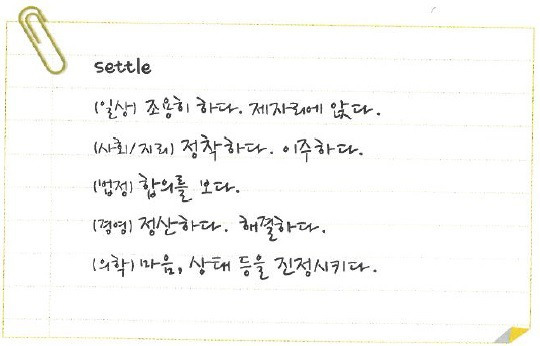 settle
(일상) 조용히 하다. 제자리에 앉다.
(사회/지리) 정착하다. 이주하다.
(법정) 합의를 보다.
(경영) 정산하다. 해결하다.
(의학) 마음, 상태 등을 진정시키다.